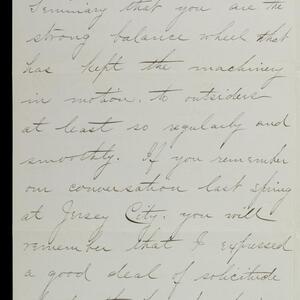 Seminary that you are the
strong balance wheel that
has kept the machinery
in motion, to outsiders
at least so regularly and
smoothly. If you remember
our conversation last spring
at Jersey City, you will
remember that I expressed
a good deal of solicitude